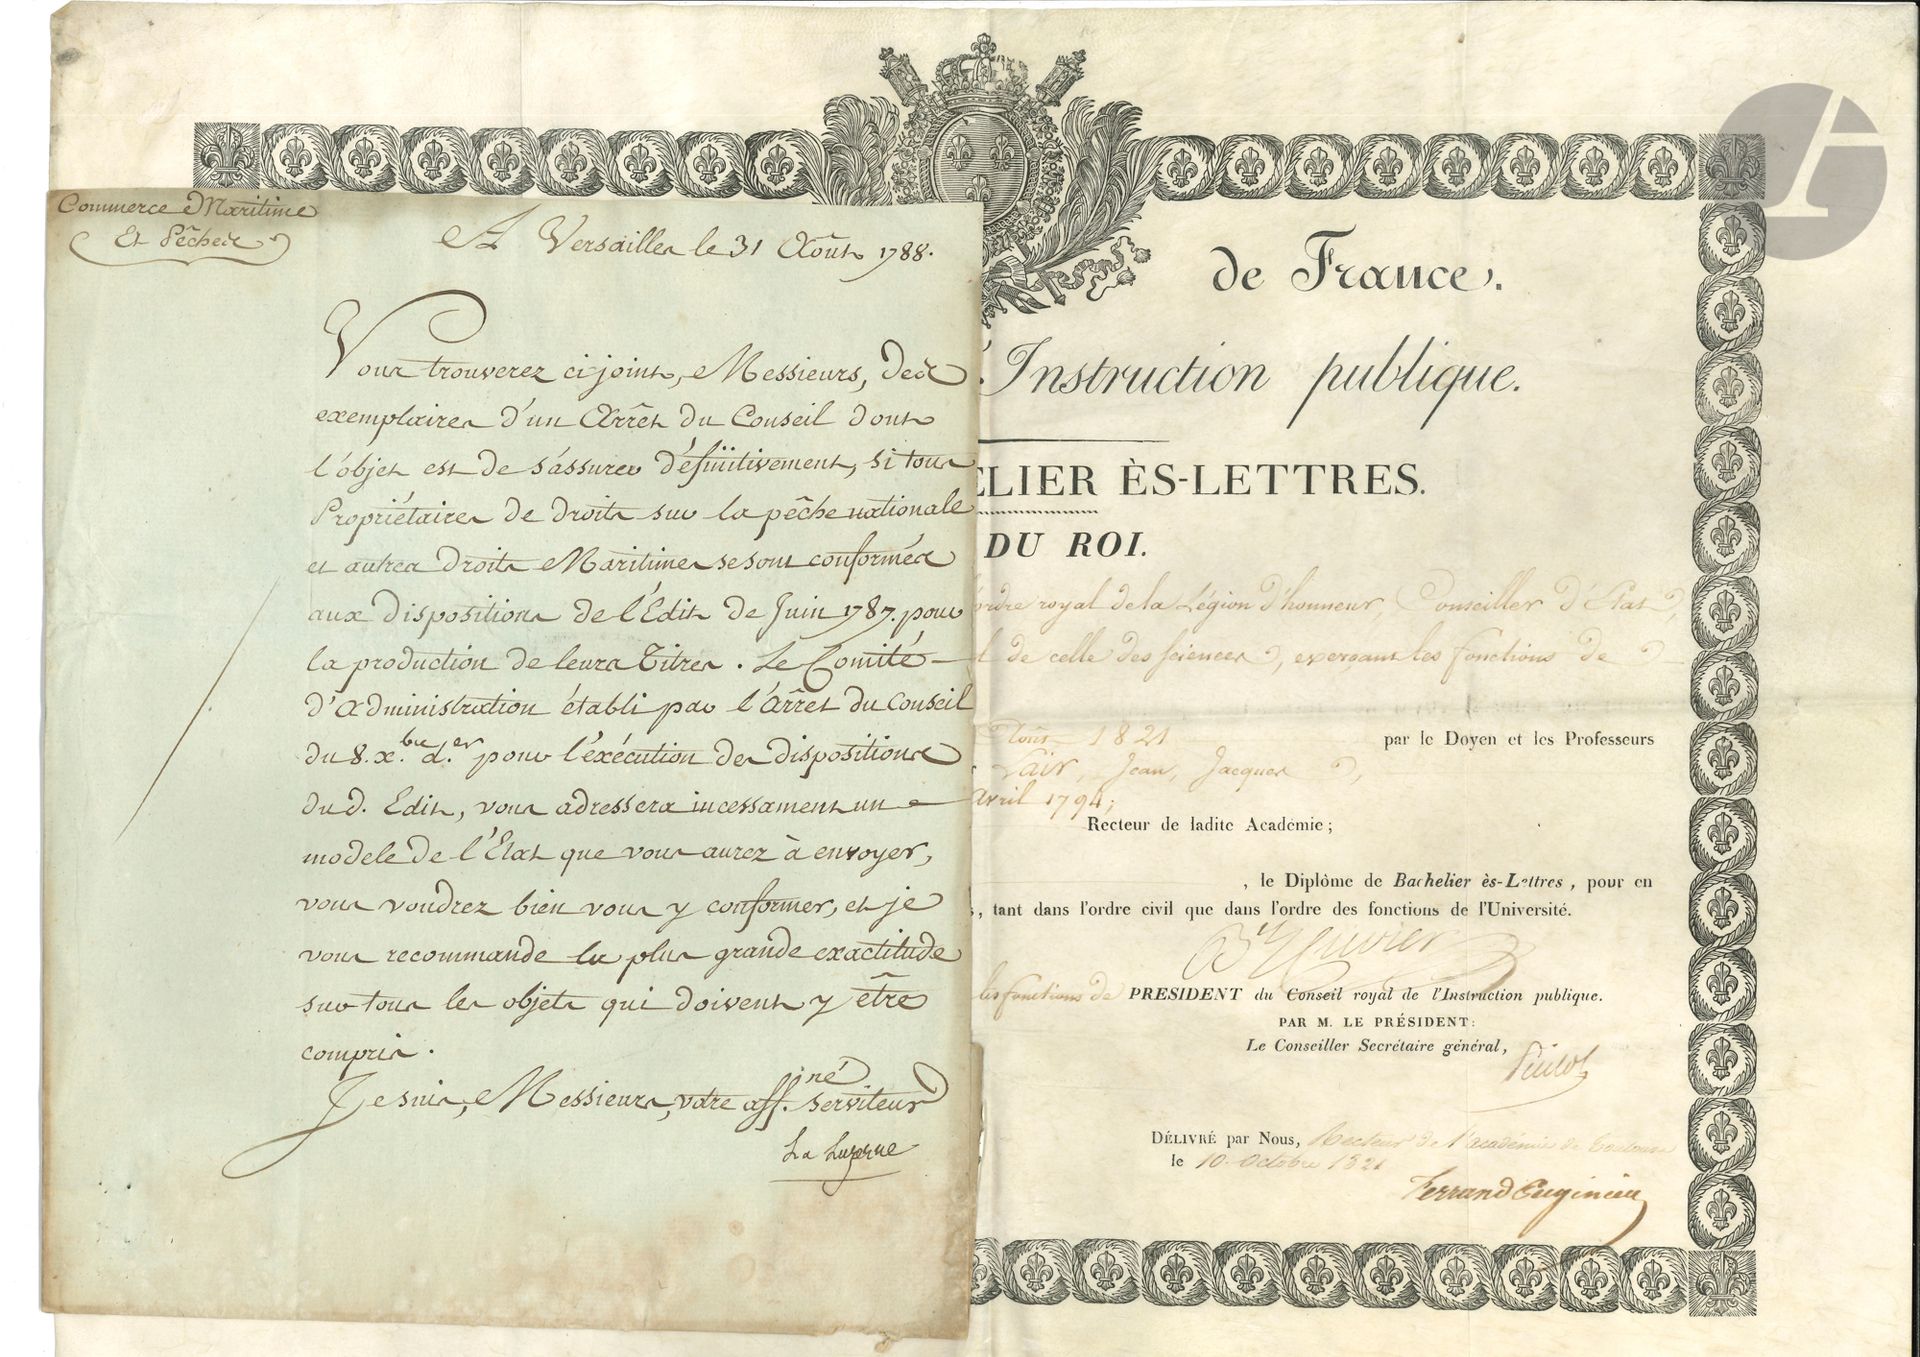 Commerce Maritime
Et Pêches
A Versailles le 31 Août 1788.
Vous trouverez ci joint, Messieurs, des
exemplaires d'un Arrêt du Conseil dont
l'objet est de s'assurer définitivement, si tous
Propriétaires de droits sur la pêche nationale
et autres droits Maritimes se sont conformés
aux dispositions de l'Edit de Juin 1787. pour
la production de leurs Titres. Le Comité
d'administration établi par l'Arrêt du Conseil
du 8. xbre. der. pour l'exécution des dispositions
du d. Edit, vous adressera incessament un
modele de l'Etat que vous aurez à envoyer,
vous voudrez bien vous y conformer, et je
vous recommande la plus grande exactitude
sur tous les objets qui doivent y être
compris.
Je suis, Messieurs, votre aff.iné serviteur
La Luzerne
de France.
Instruction publique.
ELIER ÈS-LETTRES.
DU ROI.
ordre royal de la Légion d'honneur, Conseiller d'Etat,
de celle des Sciences, exerçant les fonctions de
1821 par le Doyen et les Professeurs
Vair, Jean, Jacques
avril 1794;
Recteur de ladite Académie;
, le Diplôme de Bachelier ès-Lettres, pour en
, tant dans l'ordre civil que dans l'ordre des fonctions de l'Université.
Bn Cuvier
les fonctions de PRESIDENT du Conseil royal de l'Instruction publique.
PAR M. LE PRÉSIDENT:
Le Conseiller Secrétaire général,
DÉLIVRÉ par Nous, Recteur de l'académie de Toulouse
le 10 Octobre 1821
Ferrand